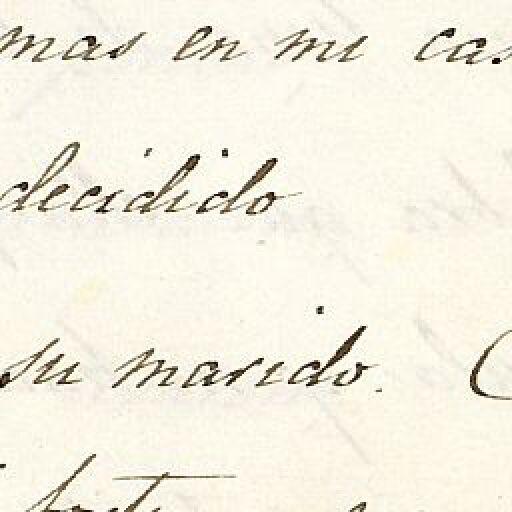 mas en mi cas
decidido
su marido.